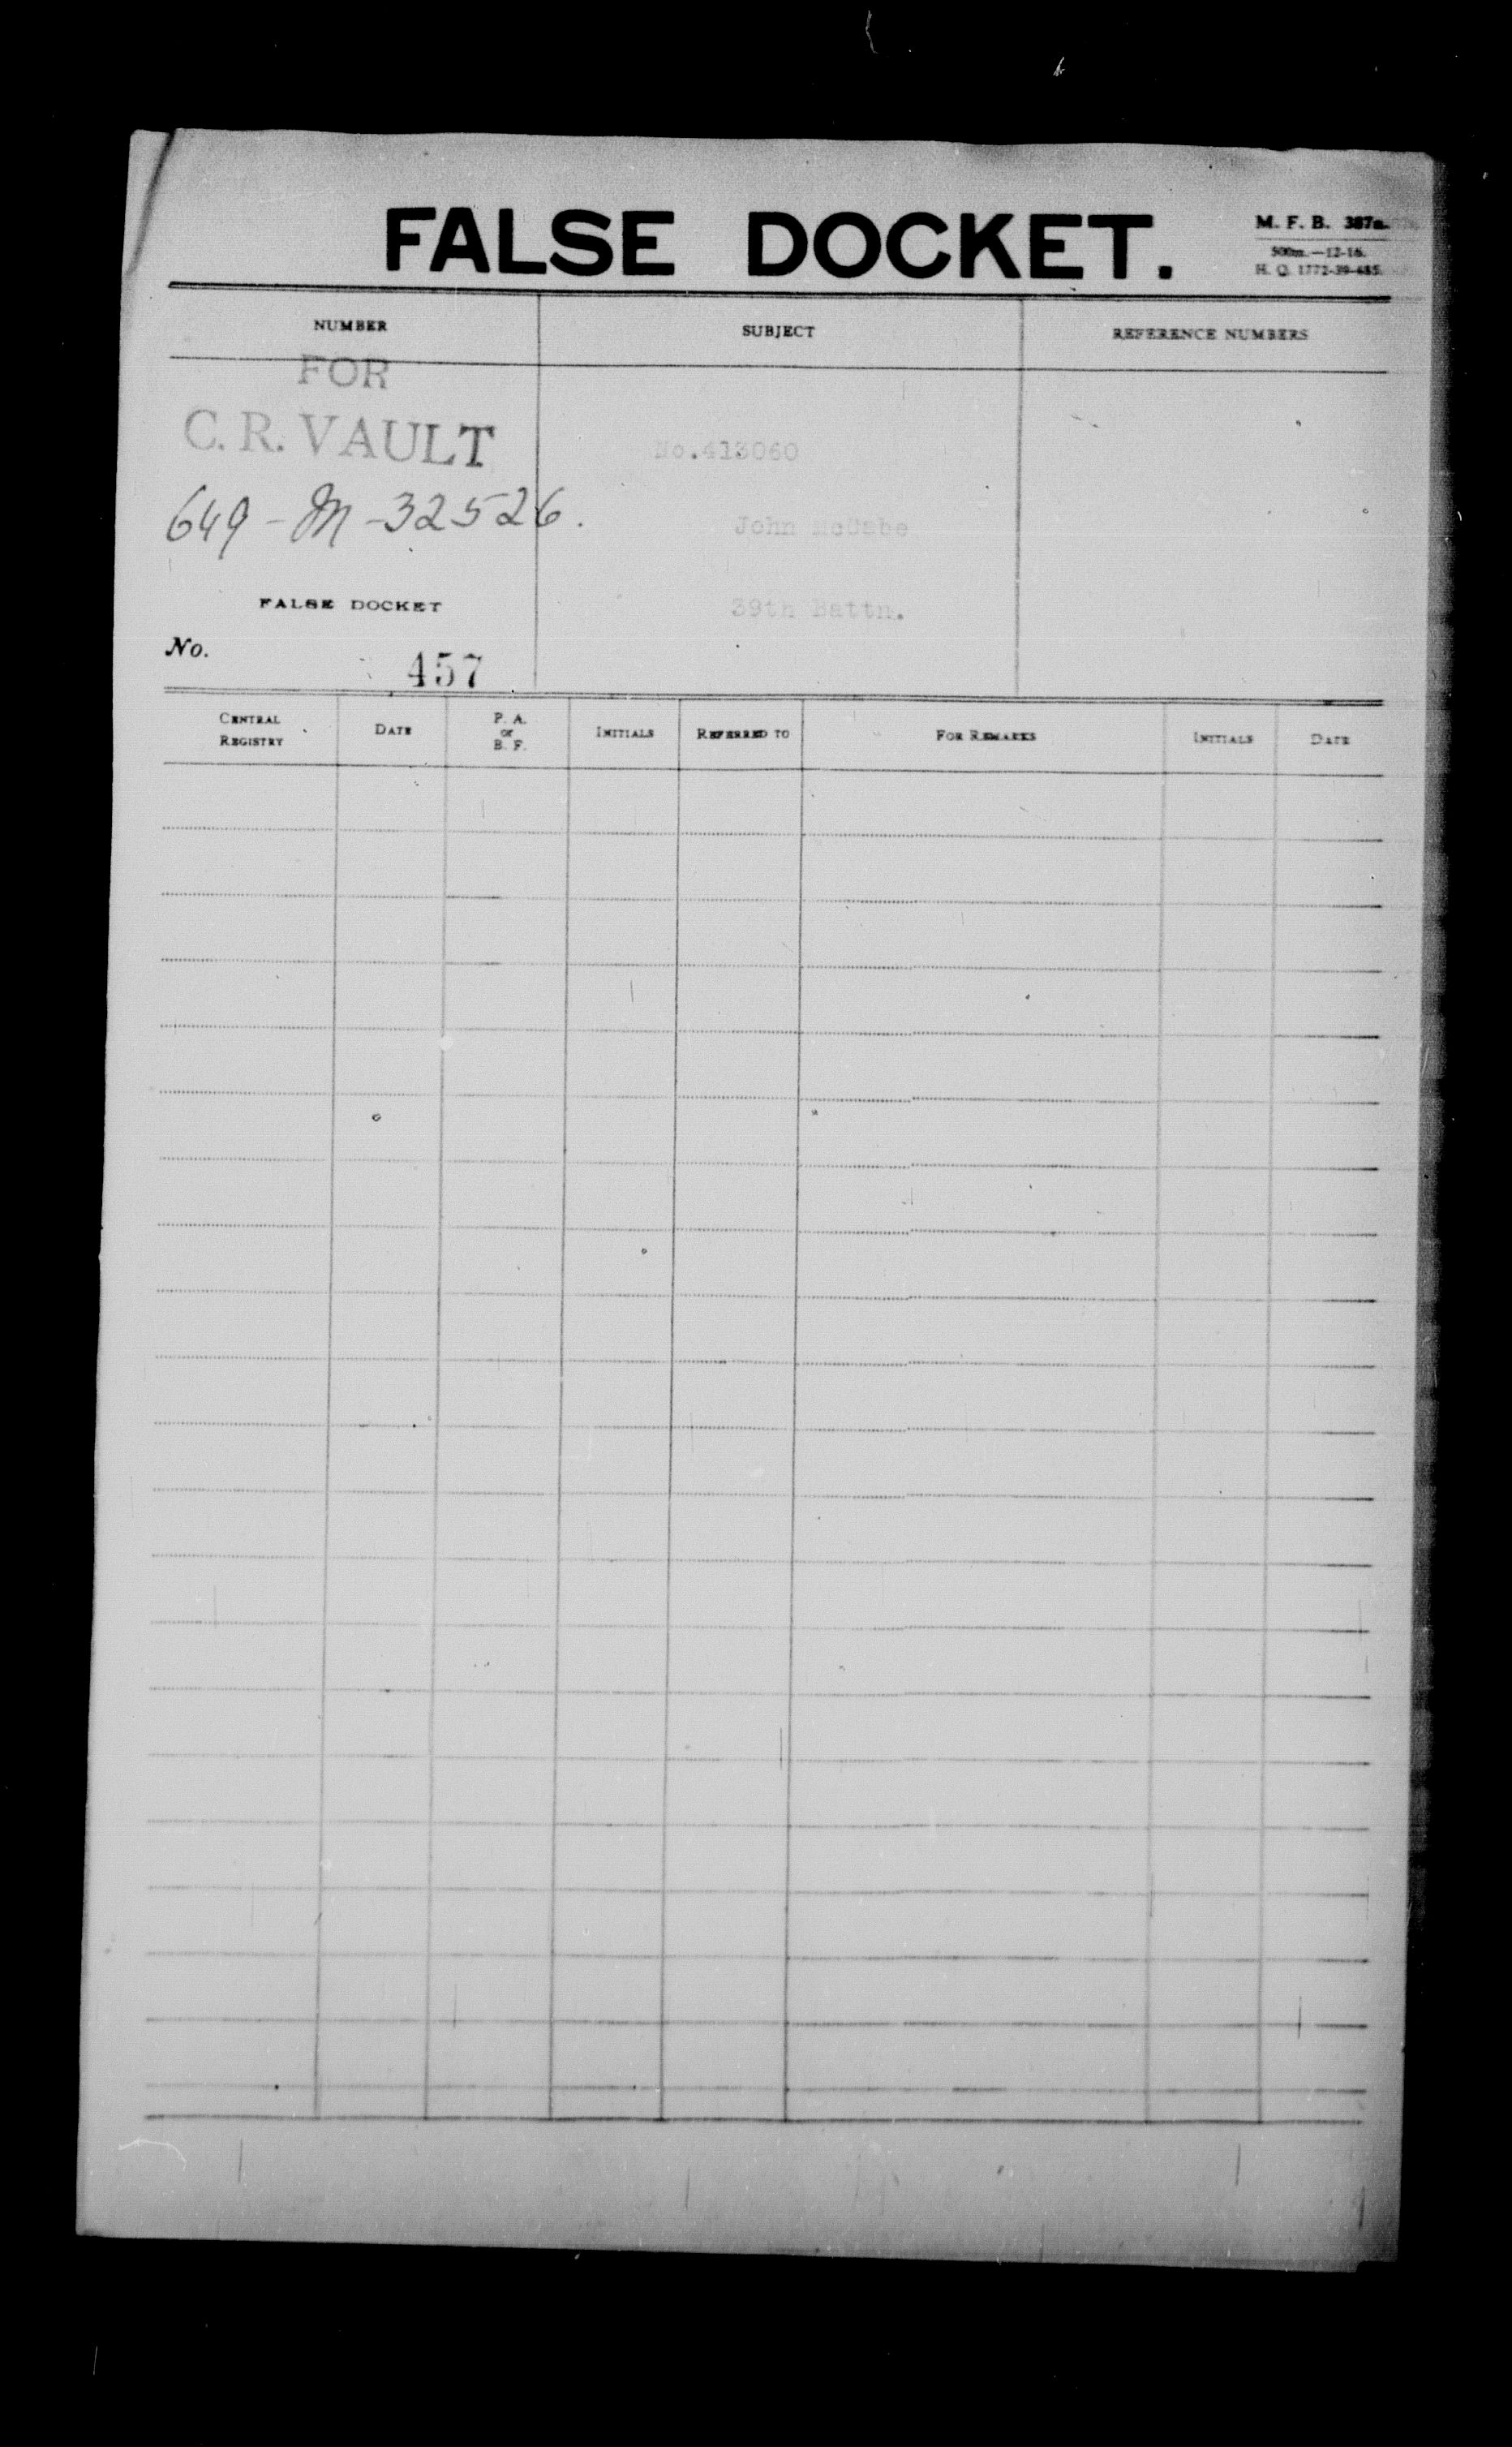 FALSE DOCKET.
M. F. B. 387a.
500m.—12-16.
H. Q. 1772-39-485.
NUMBER
SUBJECT
REFERENCE NUMBERS
FOR
C. R. VAULT
649 - M - 32526.
No.413060
John McCabe
39th Battn.
FALSE DOCKET
No.
457
CENTRAL REGISTRY
DATE
P. A. or B. F.
INITIALS
REFERRED TO
FOR REMARKS
INITIALS
DATE